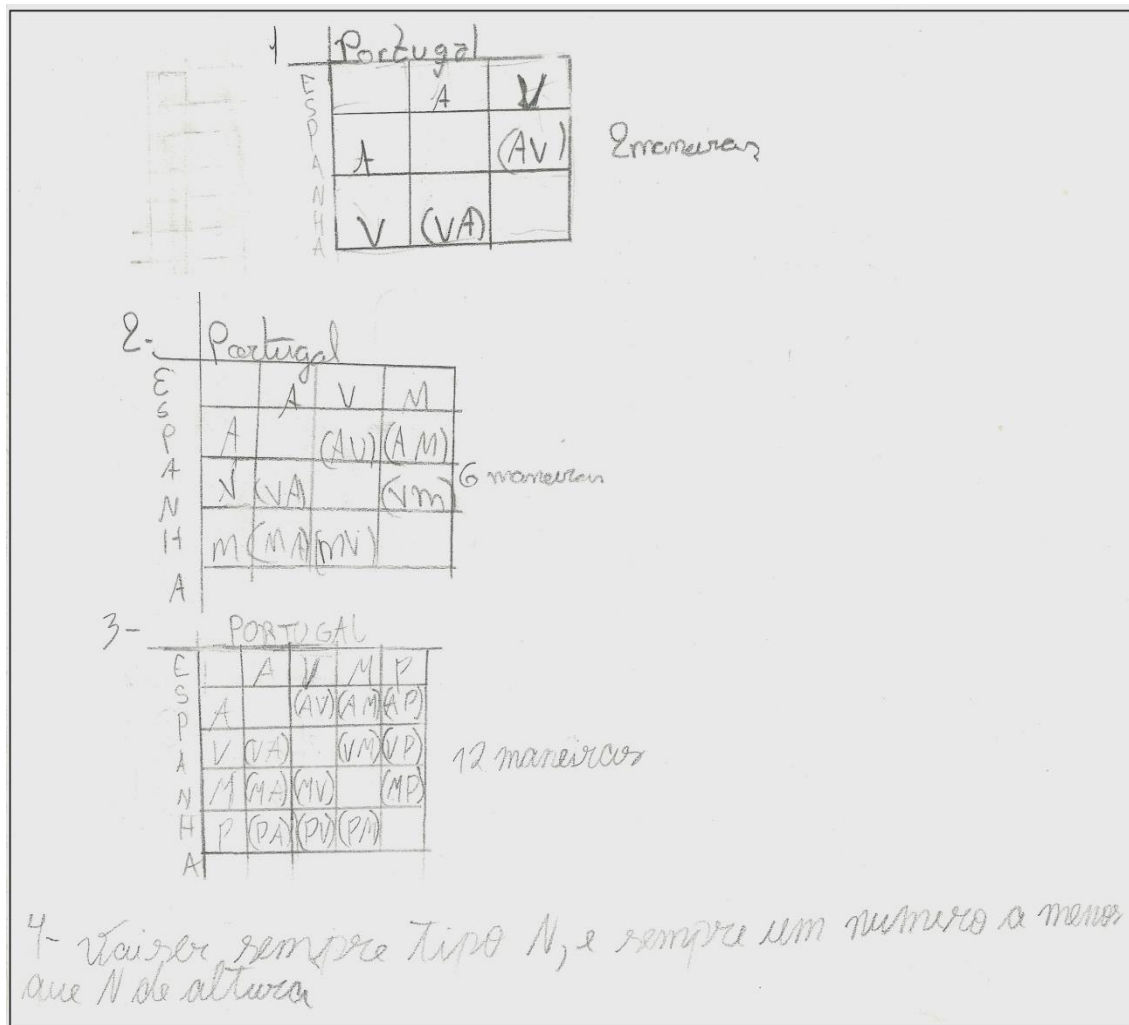 1 Portugal
ESPANHA
A V
A (AV)
V (VA)
2 maneiras
2- Portugal
ESPANHA
A V M
A (AV) (AM)
V (VA) (VM)
M (MA) (MV)
6 maneiras
3- PORTUGAL
ESPANHA
A V M P
A (AV) (AM) (AP)
V (VA) (VM) (VP)
M (MA) (MV) (MP)
P (PA) (PV) (PM)
12 maneiras
4- Vai ser sempre tipo N, e sempre um numero a menos
que N de altura